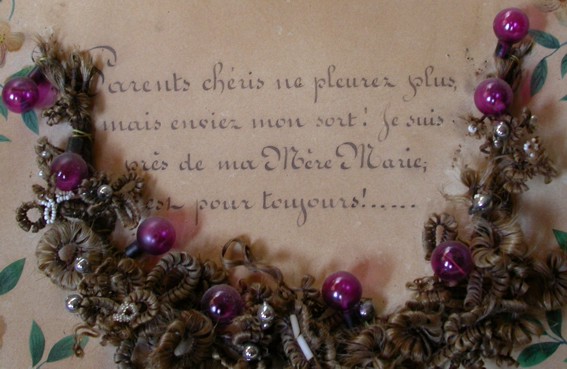 Parents chéris ne pleurez plus,
mais enviez mon sort! Je suis
près de ma Mère Marie,
pour toujours!.....